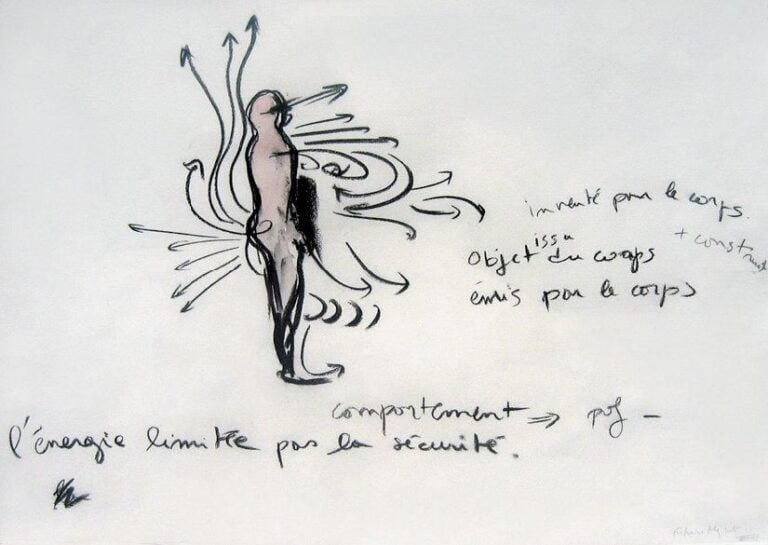 inventé par le corps.
+ construit
issu
Objet du corps
émis par le corps
comportement ⇒
l'énergie limitée par la sécurité.